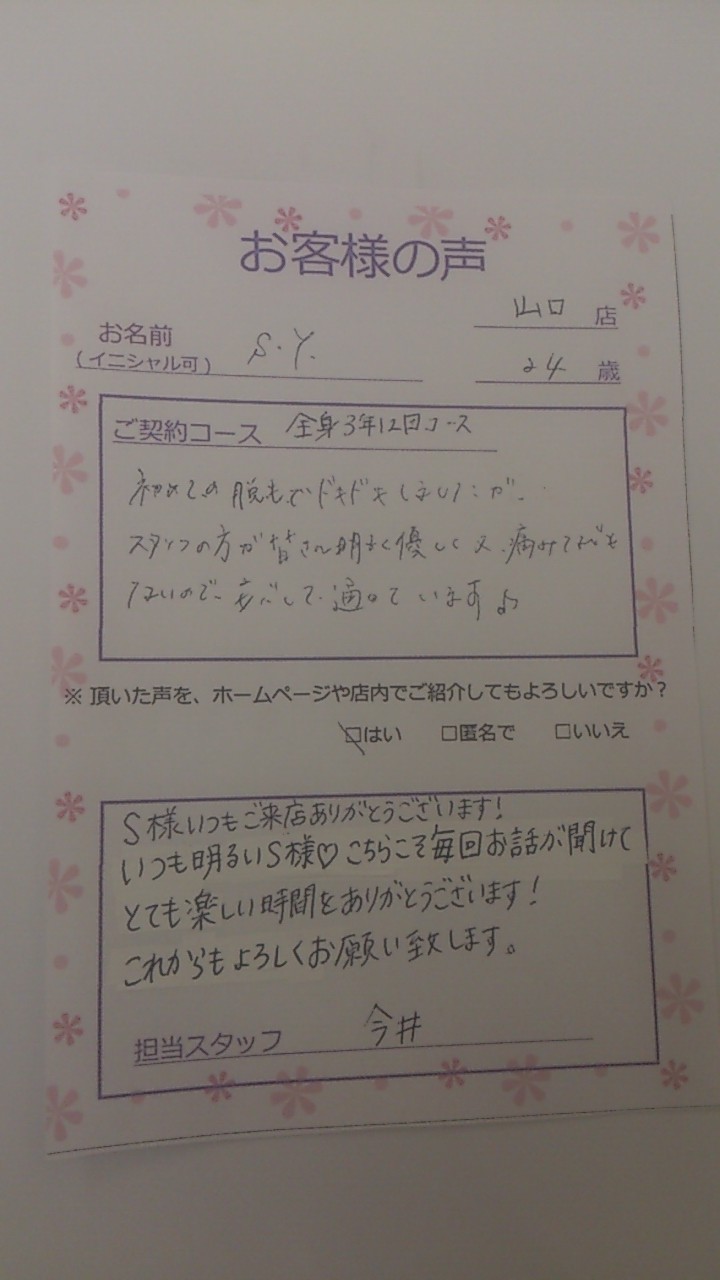 お客様の声
山口 店
お名前
(イニシャル可) S.Y.
24 歳
ご契約コース 全身3年12回コース
初めての脱毛でドキドキしましたが、
スタッフの方が皆さん明るく優しく又、痛みなども
ないので、安心して通えています♪
※ 頂いた声を、ホームページや店内でご紹介してもよろしいですか？
☑はい □匿名で □いいえ
S様いつもご来店ありがとうございます！
いつも明るいS様♡こちらこそ毎回お話が聞けて
とても楽しい時間をありがとうございます！
これからもよろしくお願い致します。
担当スタッフ 今井